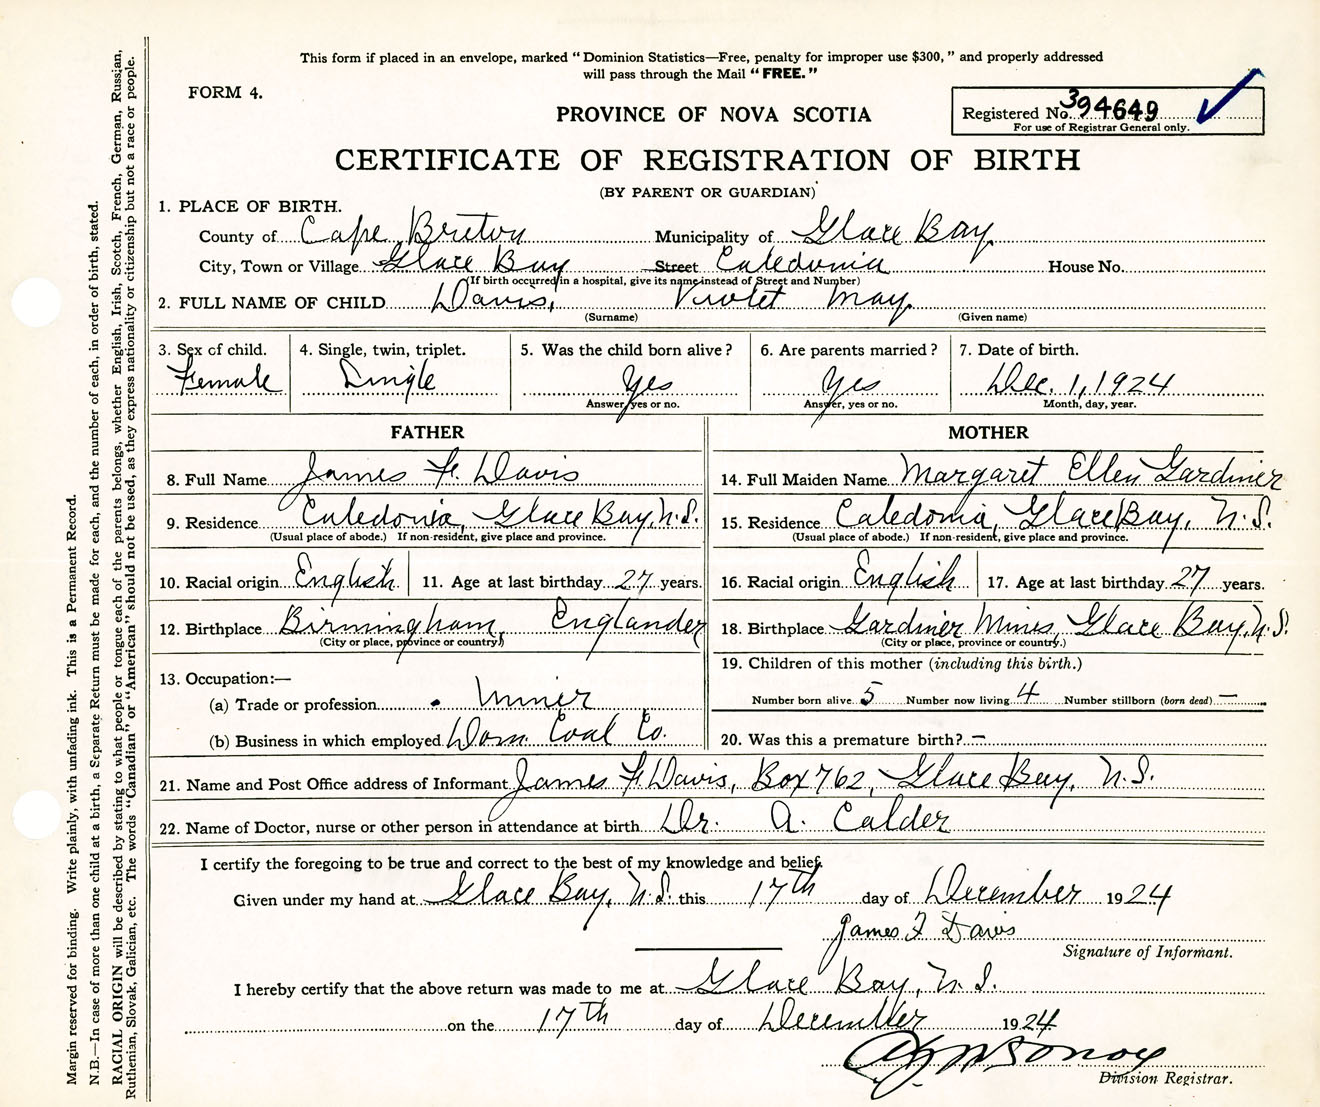 This form if placed in an envelope, marked "Dominion Statistics—Free, penalty for improper use $300," and properly addressed
will pass through the Mail "FREE."
FORM 4.
PROVINCE OF NOVA SCOTIA
Registered No. 394649
For use of Registrar General only.
CERTIFICATE OF REGISTRATION OF BIRTH
(BY PARENT OR GUARDIAN)
1. PLACE OF BIRTH.
County of Cape Breton Municipality of Glace Bay
City, Town or Village Glace Bay Street Caledonia House No.
(If birth occurred in a hospital, give its name instead of Street and Number)
2. FULL NAME OF CHILD Davis, Violet May.
(Surname) (Given name)
3. Sex of child. 4. Single, twin, triplet. 5. Was the child born alive? 6. Are parents married? 7. Date of birth.
Female Single Yes Yes Dec. 1, 1924
Answer yes or no. Answer, yes or no. Month, day, year.
FATHER MOTHER
8. Full Name James F. Davis 14. Full Maiden Name Margaret Ellen Gardiner
9. Residence Caledonia, Glace Bay, N.S. 15. Residence Caledonia, Glace Bay, N.S.
(Usual place of abode.) If non-resident, give place and province. (Usual place of abode.) If non-resident, give place and province.
10. Racial origin English 11. Age at last birthday 27 years. 16. Racial origin English 17. Age at last birthday 27 years.
12. Birthplace Birmingham, Englander 18. Birthplace Gardiner Mines, Glace Bay, N.S.
(City or place, province or country.) (City or place, province or country.)
13. Occupation:— 19. Children of this mother (including this birth.)
(a) Trade or profession Miner Number born alive 5 Number now living 4 Number stillborn (born dead) —
(b) Business in which employed Dom. Coal Co. 20. Was this a premature birth? —
21. Name and Post Office address of Informant James F. Davis, Box 762, Glace Bay, N.S.
22. Name of Doctor, nurse or other person in attendance at birth Dr. A. Calder
I certify the foregoing to be true and correct to the best of my knowledge and belief.
Given under my hand at Glace Bay, N.S. this 17th day of December 1924
James F Davis
Signature of Informant.
I hereby certify that the above return was made to me at Glace Bay, N.S.
on the 17th day of December 1924
Division Registrar.
Margin reserved for binding. Write plainly, with unfading ink. This is a Permanent Record.
N.B.—In case of more than one child at a birth, a Separate Return must be made for each, and the number of each, in order of birth, stated.
RACIAL ORIGIN will be described by stating to what people or tongue each of the parents belongs, whether English, Irish, Scotch, French, German, Russian,
Ruthenian, Slovak, Galician, etc. The words "Canadian" or "American" should not be used, as they express nationality or citizenship but not a race or people.